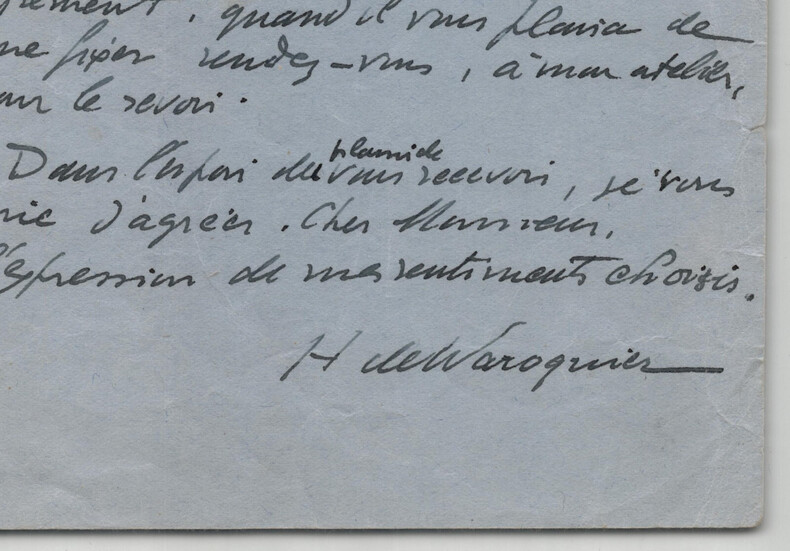 quand il vous plaira de
me fixer rendez-vous, à mon atelier,
le revoir.
Dans l'espoir du plaisir de vous recevoir, je vous
prie d'agréer. Cher Monsieur,
l'expression de mes sentiments choisis.
H de Waroquier